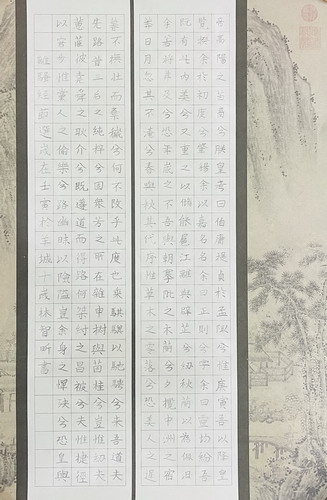 帝高陽之苗裔兮朕皇考曰伯庸攝提貞於孟陬兮惟庚寅吾以降皇
覽揆余於初度兮肇錫余以嘉名名余曰正則兮字余曰靈均紛吾
既有此內美兮又重之以脩能扈江離與辟芷兮紉秋蘭以為佩汩
余若將弗及兮恐年歲之不吾與朝搴阰之木蘭兮夕攬中洲之宿
莽日月忽其不淹兮春與秋其代序惟草木之零落兮恐美人之遲
暮不撫壯而棄穢兮何不改乎此度也乘騏驥以馳騁兮來吾道夫
先路昔三后之純粹兮固衆芳之所在雜申椒與菌桂兮豈惟紉夫
蕙茝彼堯舜之耿介兮既遵道而得路何桀紂之昌被兮夫惟捷徑
以窘步惟黨人之偷樂兮路幽昧以險隘豈余身之憚殃兮恐皇輿
離騷經節選歲在壬寅於羊城十歲林智昕書